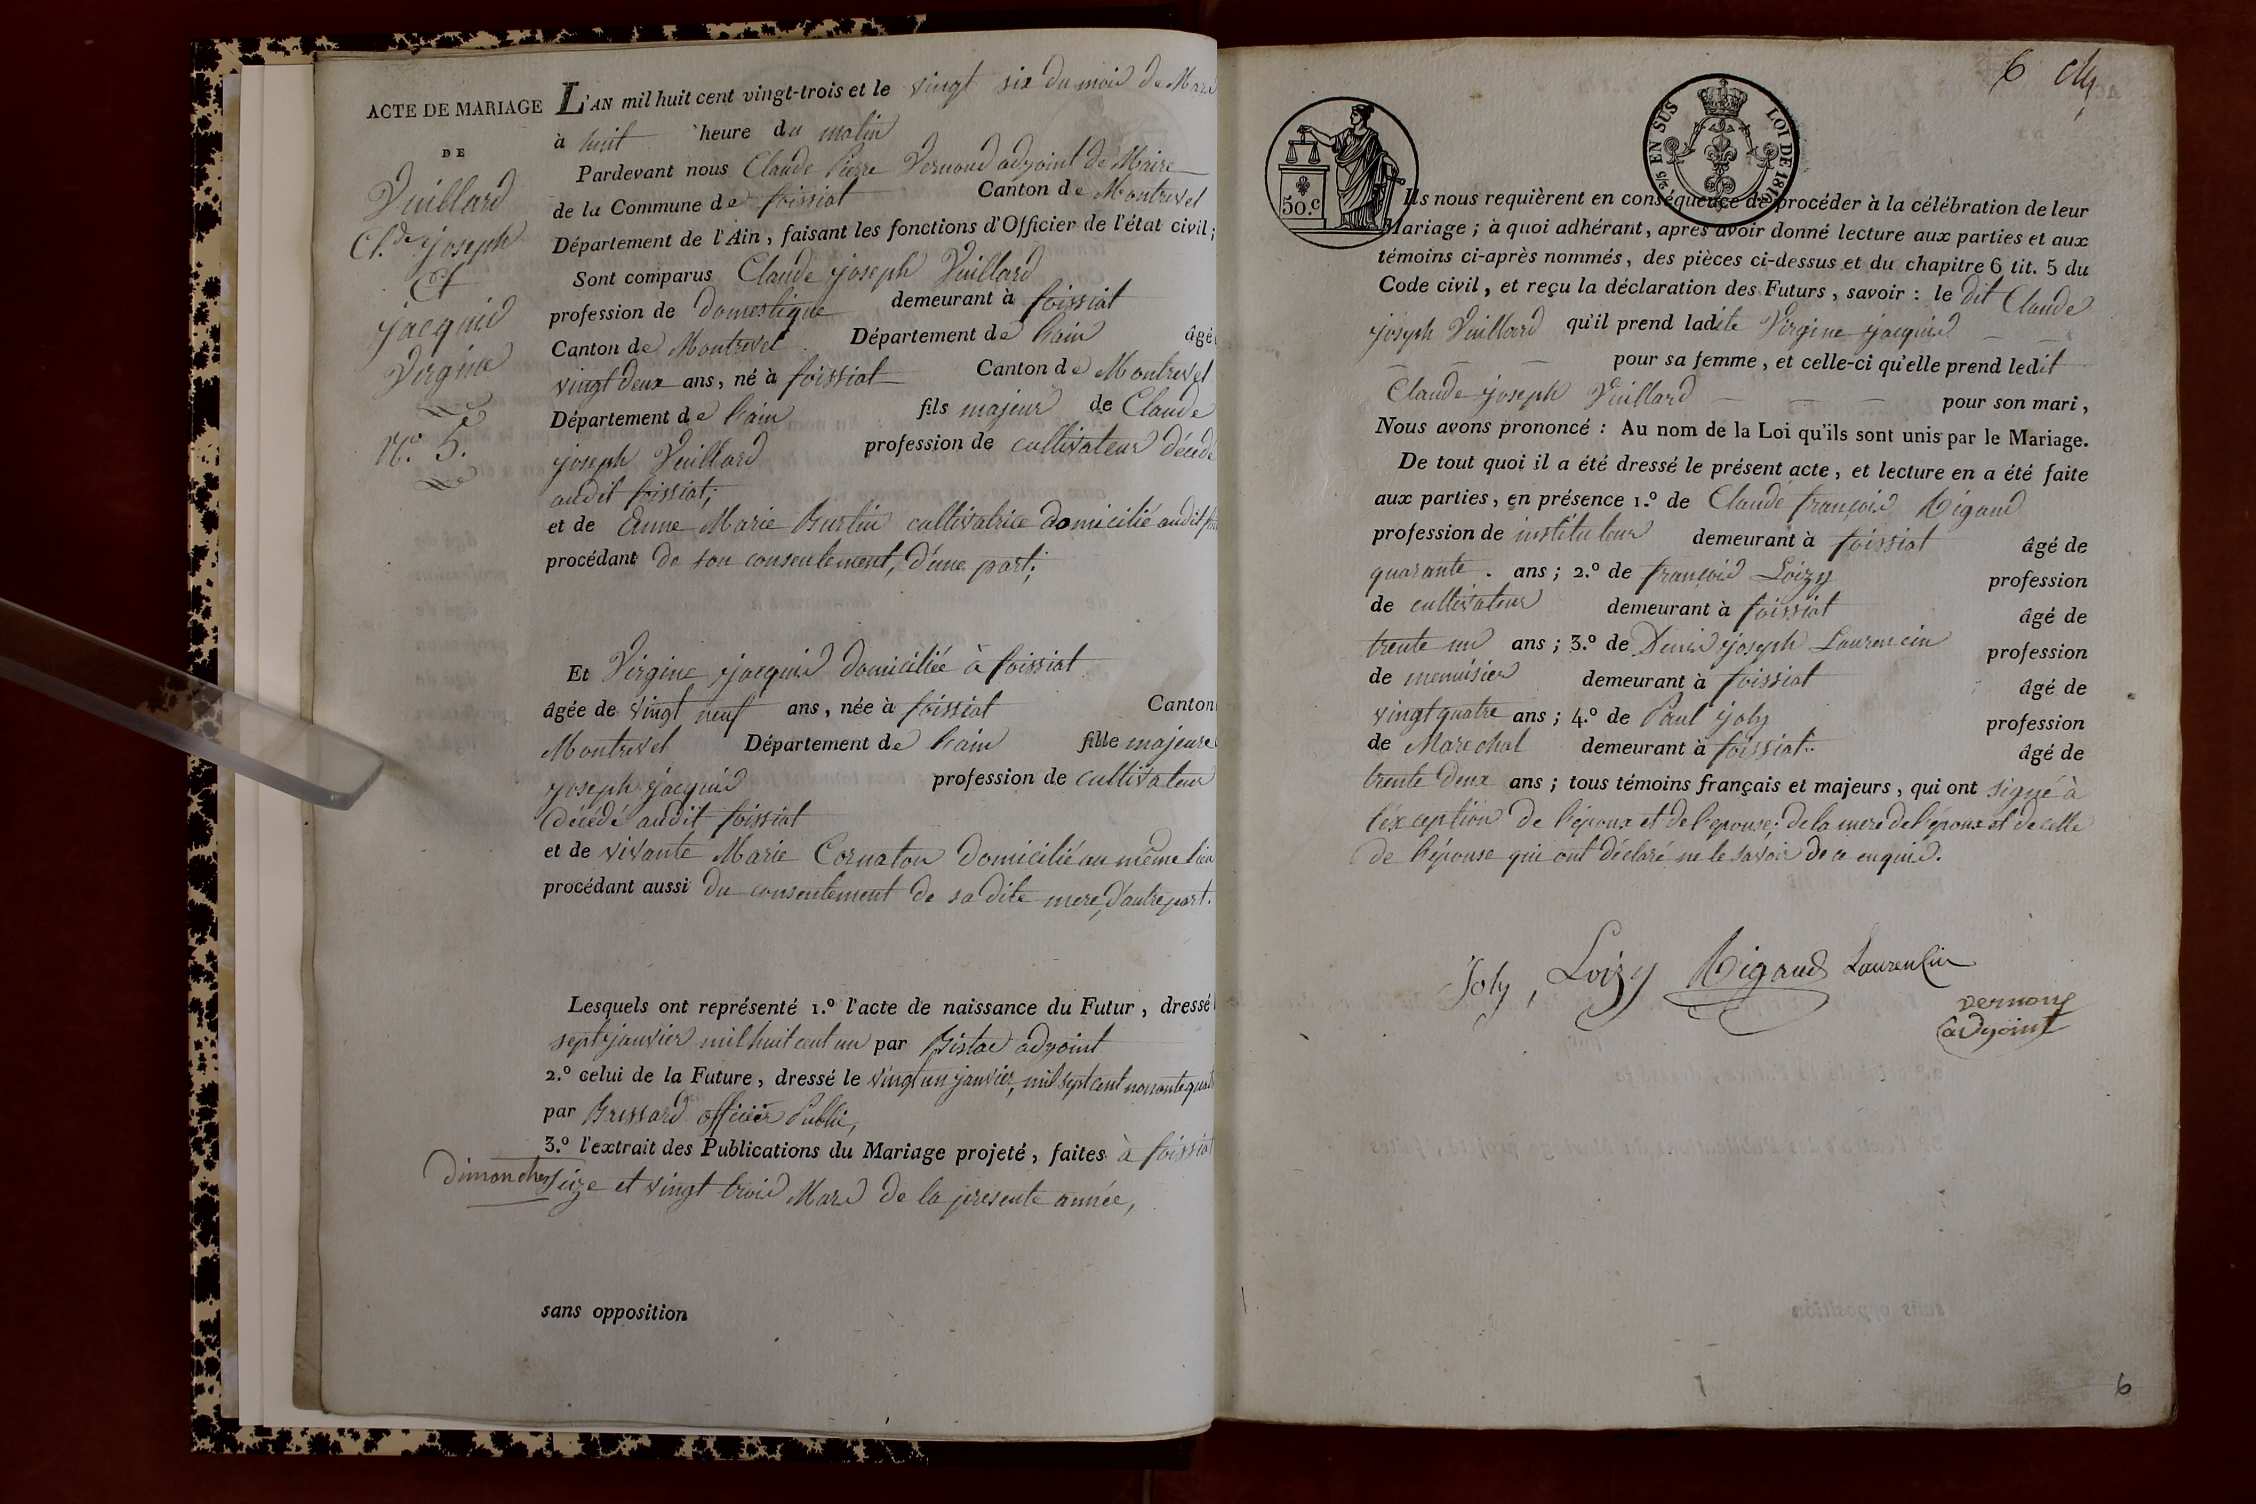 ACTE DE MARIAGE
DE
Vuillard
Cl.de joseph
Et
jacquis
Virgine
N.o 5.
L'AN mil huit cent vingt-trois et le vingt six du mois de Mars
à huit heure du matin
Pardevant nous Claude Pierre Vernoud adjoint de Maire
de la Commune de foissiat Canton de Montrevel
Département de l'Ain, faisant les fonctions d'Officier de l'état civil;
Sont comparus Claude joseph Vuillard
profession de domestique demeurant à foissiat
Canton de Montrevel Département de l'ain âgé
vingt deux ans, né à foissiat Canton de Montrevel
Département de l'ain fils majeur de Claude
joseph Vuillard profession de cultivateur décédé
audit foissiat;
et de Anne Marie Burtin cultivatrice domicilié audit
procédant de son consentement, d'une part;
Et Virgine jacquis domiciliée à foissiat
âgée de vingt neuf ans, née à foissiat Canton
Montrevel Département de l'ain fille majeure
joseph jacquis profession de cultivateur
décédé audit foissiat
et de vivante Marie Cornaton domicilié au même lieu
procédant aussi du consentement de sa dite mere, d'autre part.
Lesquels ont représenté 1.o l'acte de naissance du Futur, dressé
sept janvier mil huit cent un par adjoint
2.o celui de la Future, dressé le vingt un janvier, mil sept cent nonante quat
par officier Public,
3.o l'extrait des Publications du Mariage projeté, faites à foissiat
dimanches seize et vingt trois Mars de la presente année,
sans opposition
6
50.c
2/5 EN SUS LOI DE 1816
Ils nous requièrent en conséquence de procéder à la célébration de leur
Mariage; à quoi adhérant, après avoir donné lecture aux parties et aux
témoins ci-après nommés, des pièces ci-dessus et du chapitre 6 tit. 5 du
Code civil, et reçu la déclaration des Futurs, savoir: le dit Claude
joseph Vuillard qu'il prend ladite Virgine jacquis
pour sa femme, et celle-ci qu'elle prend ledit
Claude joseph Vuillard pour son mari,
Nous avons prononcé: Au nom de la Loi qu'ils sont unis par le Mariage.
De tout quoi il a été dressé le présent acte, et lecture en a été faite
aux parties, en présence 1.o de Claude françois Rigaud
profession de instituteur demeurant à foissiat âgé de
quarante. ans; 2.o de françois Loizy profession
de cultivateur demeurant à foissiat âgé de
trente un ans; 3.o de Denis joseph Laurencin profession
de menuisier demeurant à foissiat âgé de
vingt quatre ans; 4.o de Paul joly profession
de Marechal demeurant à foissiat.. âgé de
trente deux ans; tous témoins français et majeurs, qui ont signé à
l'éxception de l'époux et de l'epouse; de la mere de l'époux et de celle
de l'épouse qui ont déclaré ne le savoir de ce enquis.
Joly, Loizy Rigaud Laurencin
vernoux
adjoint
6